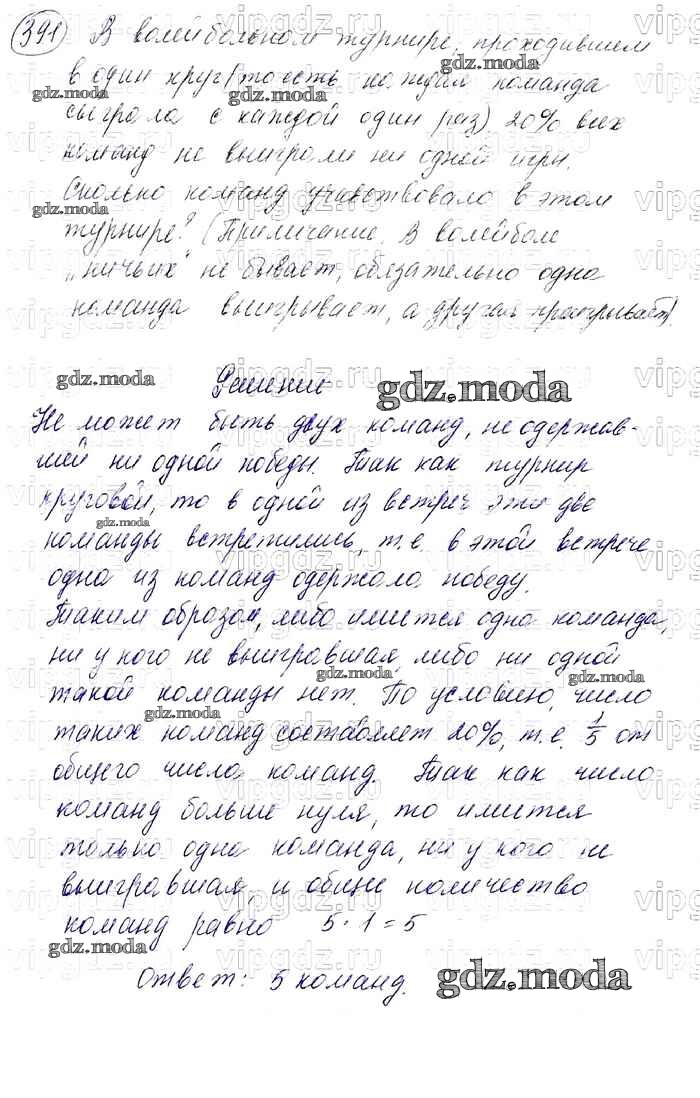 391 В волейбольном турнире, проходившем
в один круг (то есть каждая команда
сыграла с каждой один раз) 20% всех
команд не выиграли ни одной игры.
Сколько команд учавствовало в этом
турнире? (Примечание. В волейболе
„ничьих" не бывает, обязательно одна
команда выигрывает, а другая проигрывает).
Решение
gdz.moda
Не может быть двух команд, не одержав-
шей ни одной победы. Так как турнир
круговой, то в одной из встреч эти две
команды встретились, т.е. в этой встрече
одна из команд одержала победу.
Таким образом, либо имеется одна команда,
ни у кого не выигравшая, либо ни одной
такой команды нет. По условию, число
таких команд составляет 20%, т.е. 1/5 от
общего числа команд. Так как число
команд больше нуля, то имеется
только одна команда, ни у кого не
выигравшая, и общее количество
команд равно 5 · 1 = 5
gdz.moda
Ответ: 5 команд.
gdz.moda